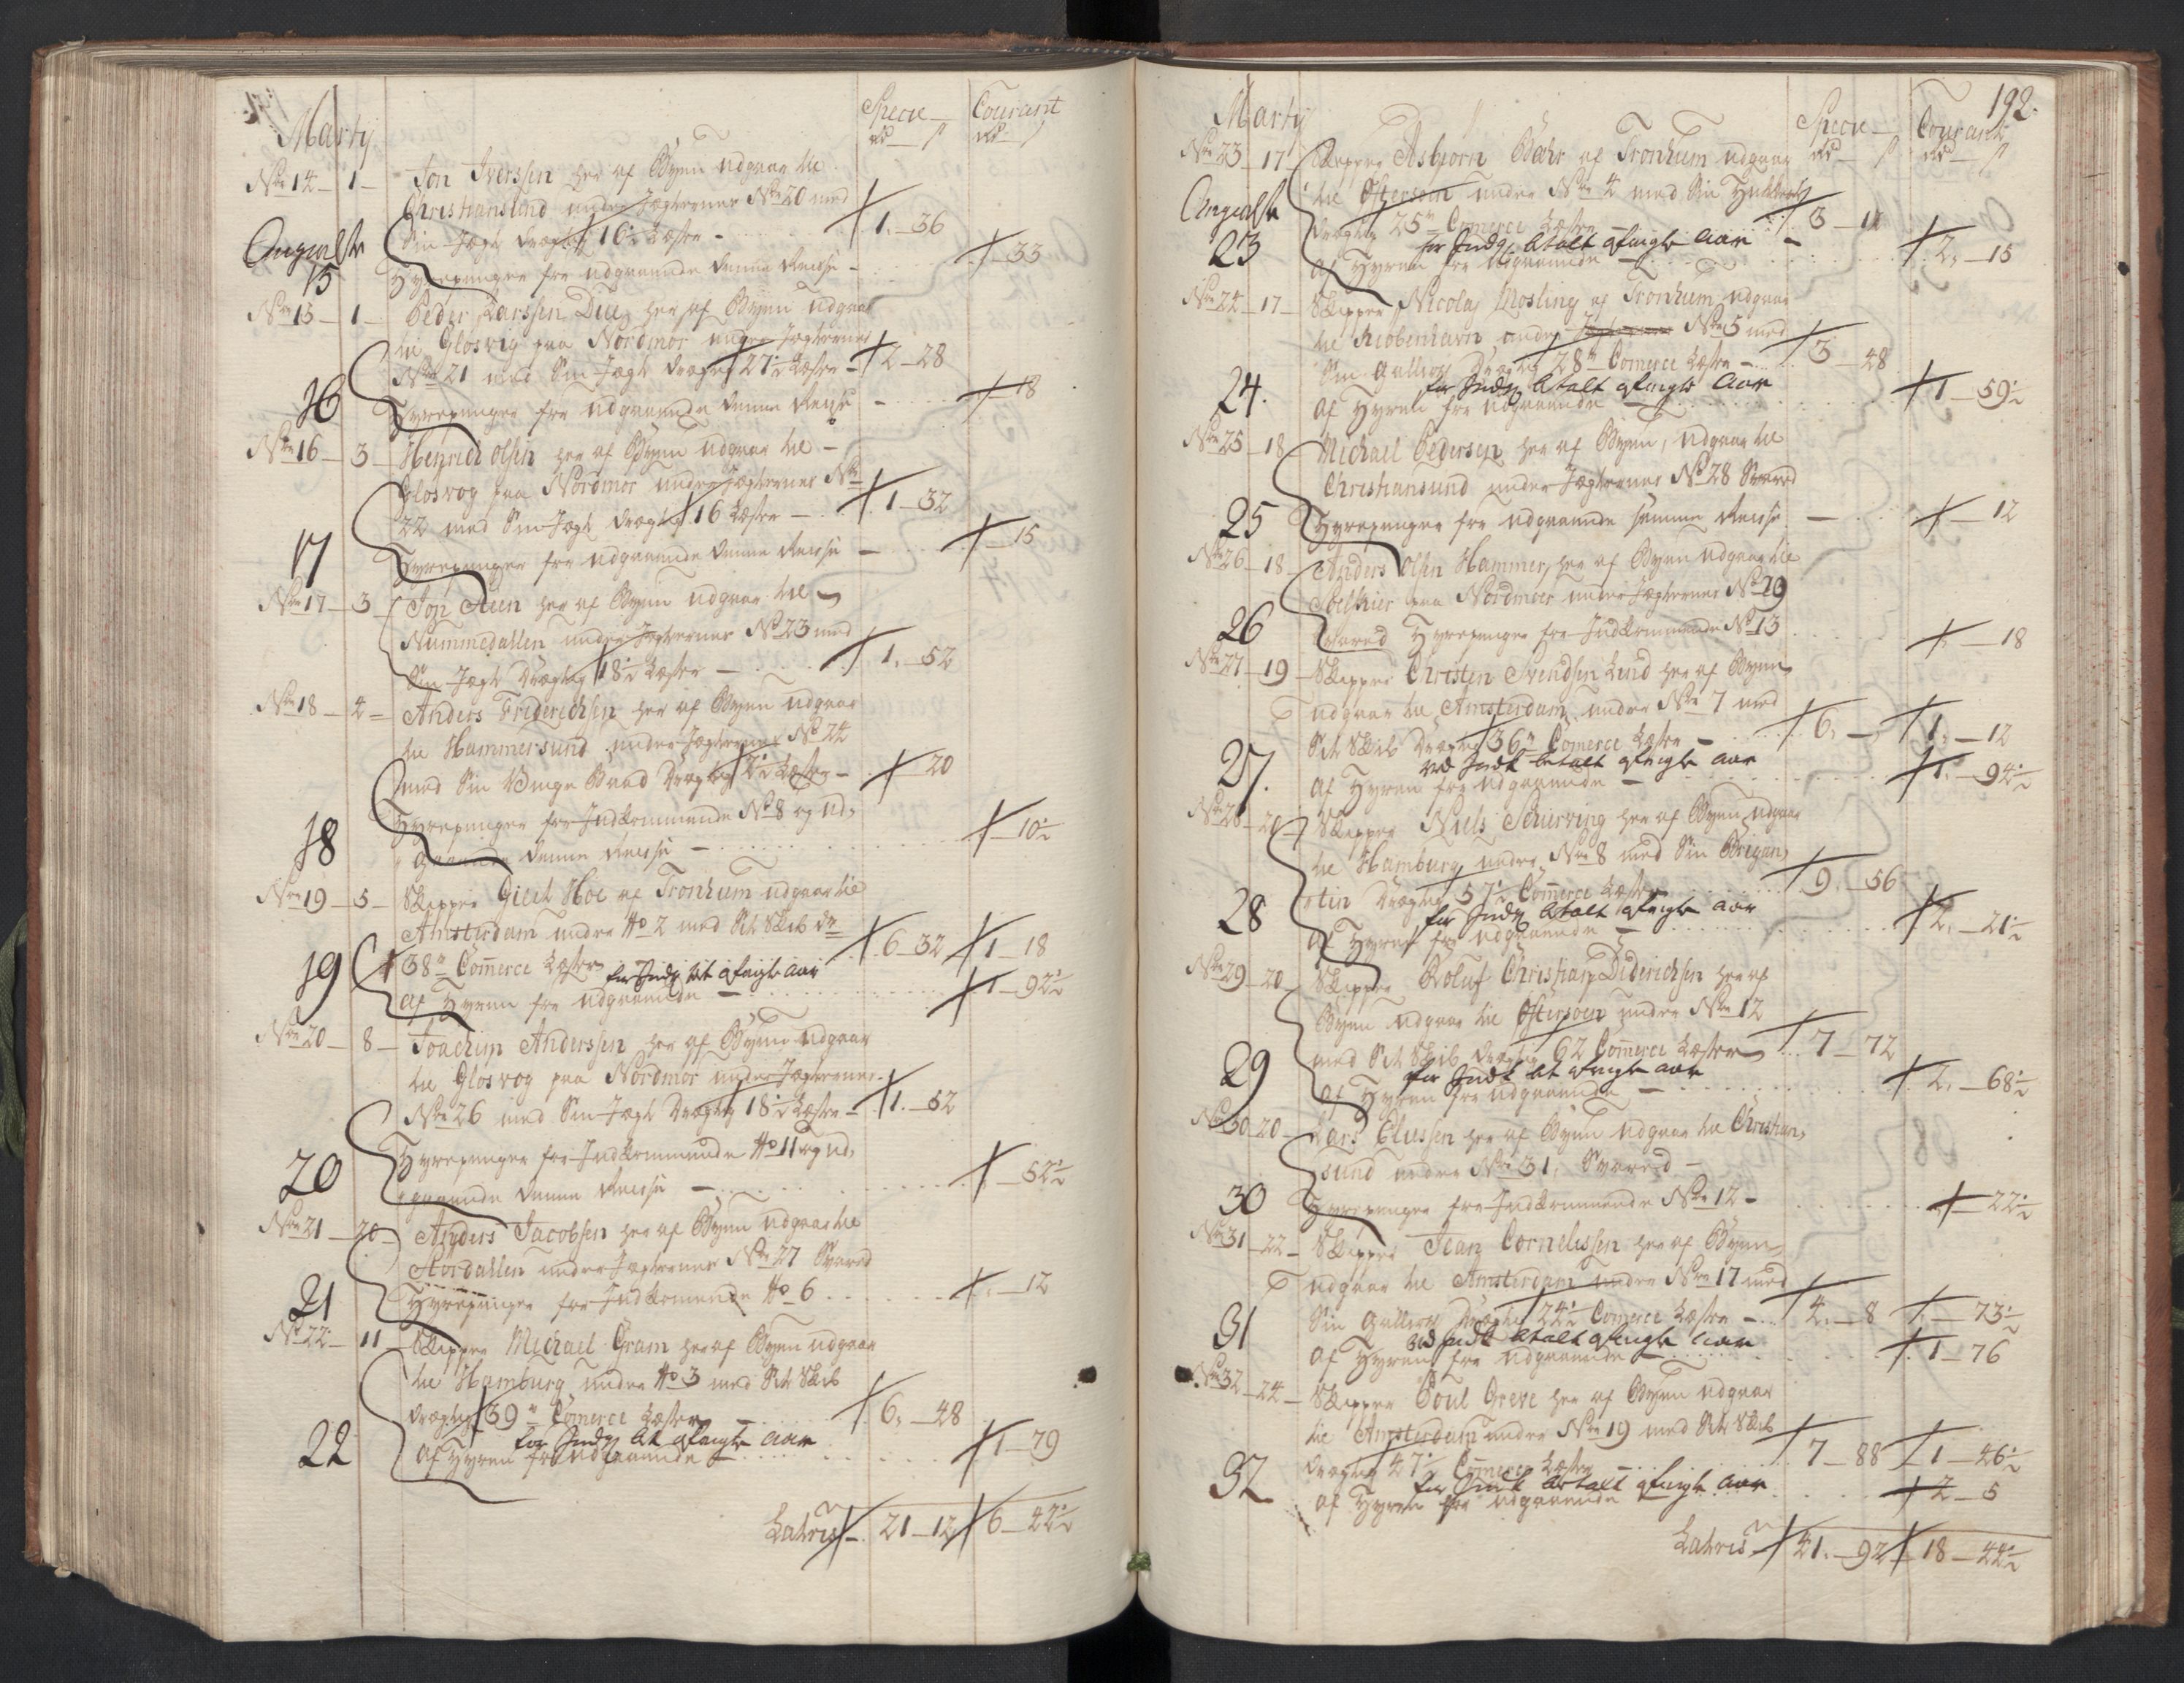 Marty
Specie Courant
rd ß rd ß
No 14 1 Jon Iverssen her af Byen udgaar til
Christiansund under Jægternes No 20 med
Sin Jægt drægtig 16½ Læster - 1 - 36
Angialste
15 Hyrepenger for udgaaende denne Reise - 33
No 15 1 Peder Larssen Due her af Byen udgaar
til Glosvig paa Nordmør under Jægternes
No 21 med Sin Jægt drægtig 27½ Læster - 2 - 28
16 Hyrepenger for udgaaende denne Reise - 18
No 16 3 Henrich Olsen her af Byen udgaar til -
Glosvog paa Nordmør under Jægternes No
22 med Sin Jægt drægtig 16 Læster - 1 - 32
17 Hyrepenger for udgaaende denne Reise - 15
No 17 3 Jon Steen her af Byen udgaar til
Nummedallen under Jægternes No 23 med
Sin Jægt Drægtig 18½ Læster - 1 - 52
No 18 4 Anders Friderichsen her af Byen udgaar
til Hammersund under Jægternes No 24
med Sin Baad Drægtig Læster - 20
Hyrepenger for Indkommende No 8 og ud-
18 gaaende denne Reise - 10½
No 19 5 Skipper Giert Hoe af Tronhiem udgaar til
Amsterdam under No 2 med Sit Skib dr
19 38 Comerce Læster 6 - 32 1 - 18
for Indg bet afvigte aar
af Hyren for udgaaende - 1 - 92½
No 20 8 Joachim Anderssen her af Byen udgaar
til Glosvog paa Nordmør under Jægternes
No 26 med Sin Jægt Drægtig 18½ Læster - 1 - 52
Hyrepenger for Indkommende No 11 og ud-
20 gaaende denne Reise - 52½
No 21 20 Anders Jacobsen her af Byen udgaar til
Stordallen under Jægternes No 27 Svared
21 Hyrepenger for Indkomende No 6 - 12
No 22 11 Skipper Michael Gram her af Byen udgaar
til Hamburg under No 3 med Sit Skib
drægtig 39 Comerce Læster - 6 - 48
for Indg bet afvigte aar
22 af Hyren for udgaaende - 1 - 79
Latris 21 - 12 6 - 42½
192
Marty
Specie Courant
rd ß rd ß
No 23 17 Skipper Asbjørn Bæhr af Tronhiem udgaar
til Østersøen under No 4 med Sin Hukkert
Angialste
drægtig 25 Comerce Læster 3 - 11
for Indg betalt afvigte aar
23 af Hyren for udgaaende - 2 - 15
No 24 17 Skipper Nicolay Mosling af Tronhiem udgaar
til Kiøbenhavn under Jægternes No 5 med
Sin Galliot Drægtig 28 Comerce Læster - 3 - 48
for Indg betalt afvigte aar
24 af Hyren for udgaaende - 1 - 59½
No 25 18 Michael Pedersen her af Byen, udgaar til
Christiansund under Jægternes No 28 Svared
25 Hyrepenger for udgaaende samme Reise - 12
No 26 18 Anders Olsen Hammer, her af Byen udgaar til
paa Nordmøer under Jægternes No 29
26 Svared Hyrepenger for Indkommende No 13 - 18
No 27 19 Skipper Christen Svendsen Lind her af Byen
udgaar til Amsterdam under No 7 med
Sit Skib Drægtig 36 Comerce Læster - 6 - 1 - 12
ved Indk betalt afvigte aar
27. af Hyren for udgaaende - 1 - 94½
No 28 20 Skipper Niels Schierving her af Byen udgaar
til Hamburg under No 8 med Sin Brigan-
tin drægtig 57½ Comerce Læster 9 - 56
for Indg betalt afvigte aar
28 af Hyren for udgaaende - 2 - 21½
No 29 20 Skipper Roluf Christian Diderichsen her af
Byen udgaar til Østersøen under No 12
med Sit Skib drægtig 62 Comerce Læster 7 - 72
for Indk bet afvigte aar
29 af Hyren for udgaaende - 2 - 68½
No 30 20 Lars Elliessen her af Byen udgaar til Christian-
sund under No 31. Svared -
30 Hyrepenger for Indkommende No 12 - 22½
No 31 22 Skipper Jean Cornelissen her af Byen
udgaar til Amsterdam under No 17 med
Sin Galliot Drægtig 24½ Comerce Læster - 4 - 8 - 73½
ved Indk betalt afvigte aar
31 af Hyren for udgaaende - 1 - 76
No 32 24 Skipper Poul Greve her af Byen udgaar
til Amsterdam under No 19 med Sit Skib
drægtig 47½ Comerce Læster - 7 - 88 1 - 46½
for Indk betalt afvigte aar
32 af Hyren for udgaaende 2 - 5
Latris 41 - 92 18 - 44½